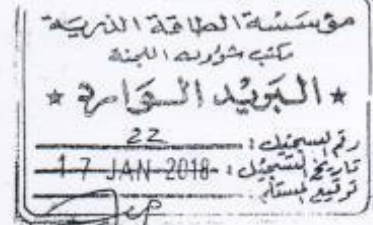 مؤسسة الطاقة الذرية
مكتب شؤون اللجنة
* البريد الوارد *
رقم التسجيل : 22
تاريخ التسجيل : 17 JAN 2018
توقيع المستلم :